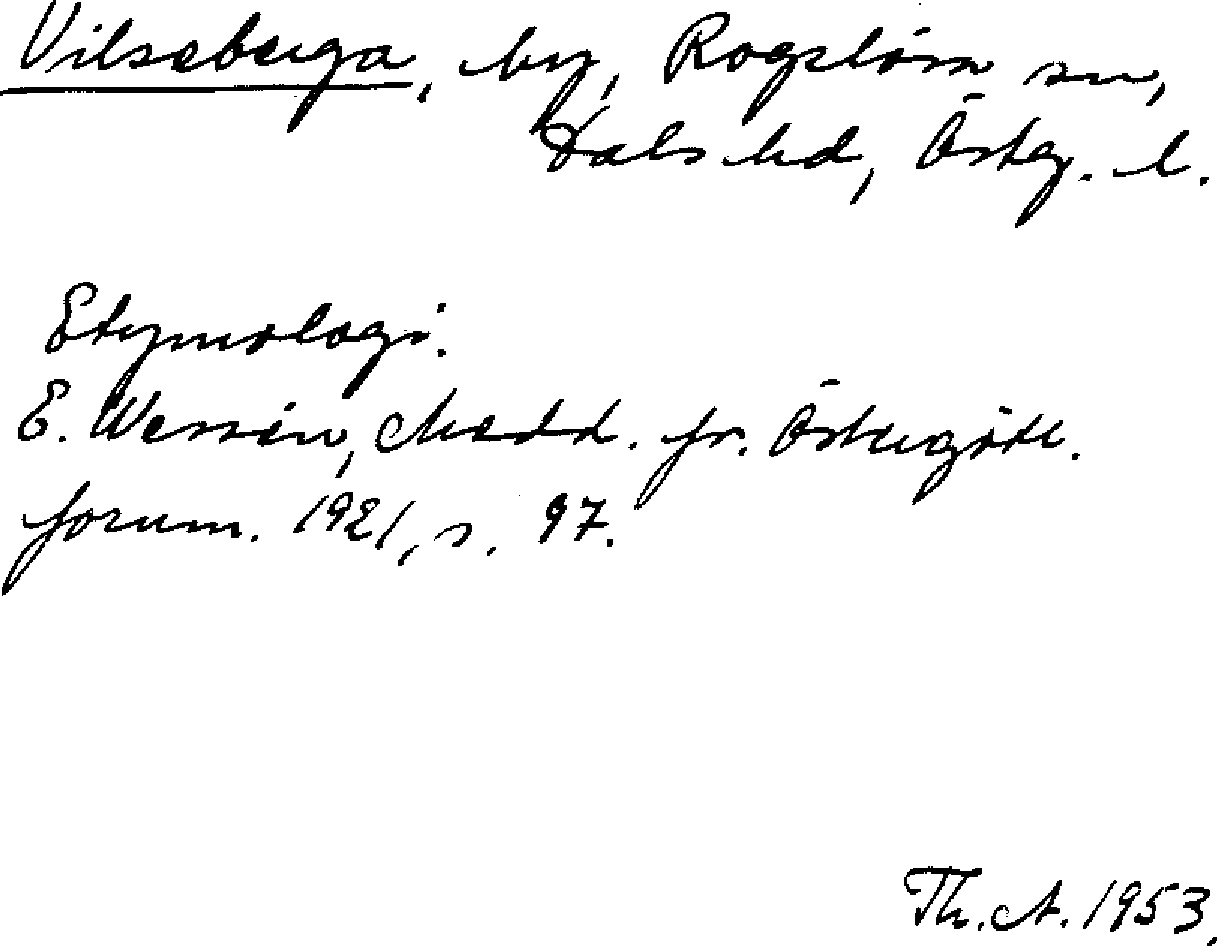 Vilseberga, by, Rogslösa sn,
Dals hd, Östg. l.
Etymologi.
E. Wessén, Medd. fr. Östergötl.
fornm. 1921, s. 97.
Th. A. 1953.